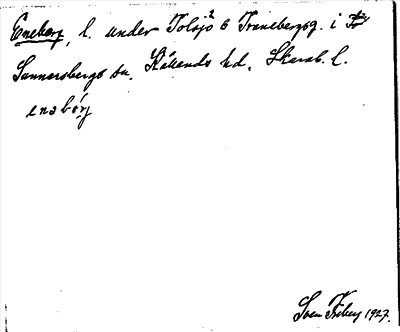 Eneberg, l. under Tolsjö 2 o Tranebergsg. i
Sunnersbergs sn. Kållands hd. Skarab. l.
enabörj
Sven Friberg 1927.